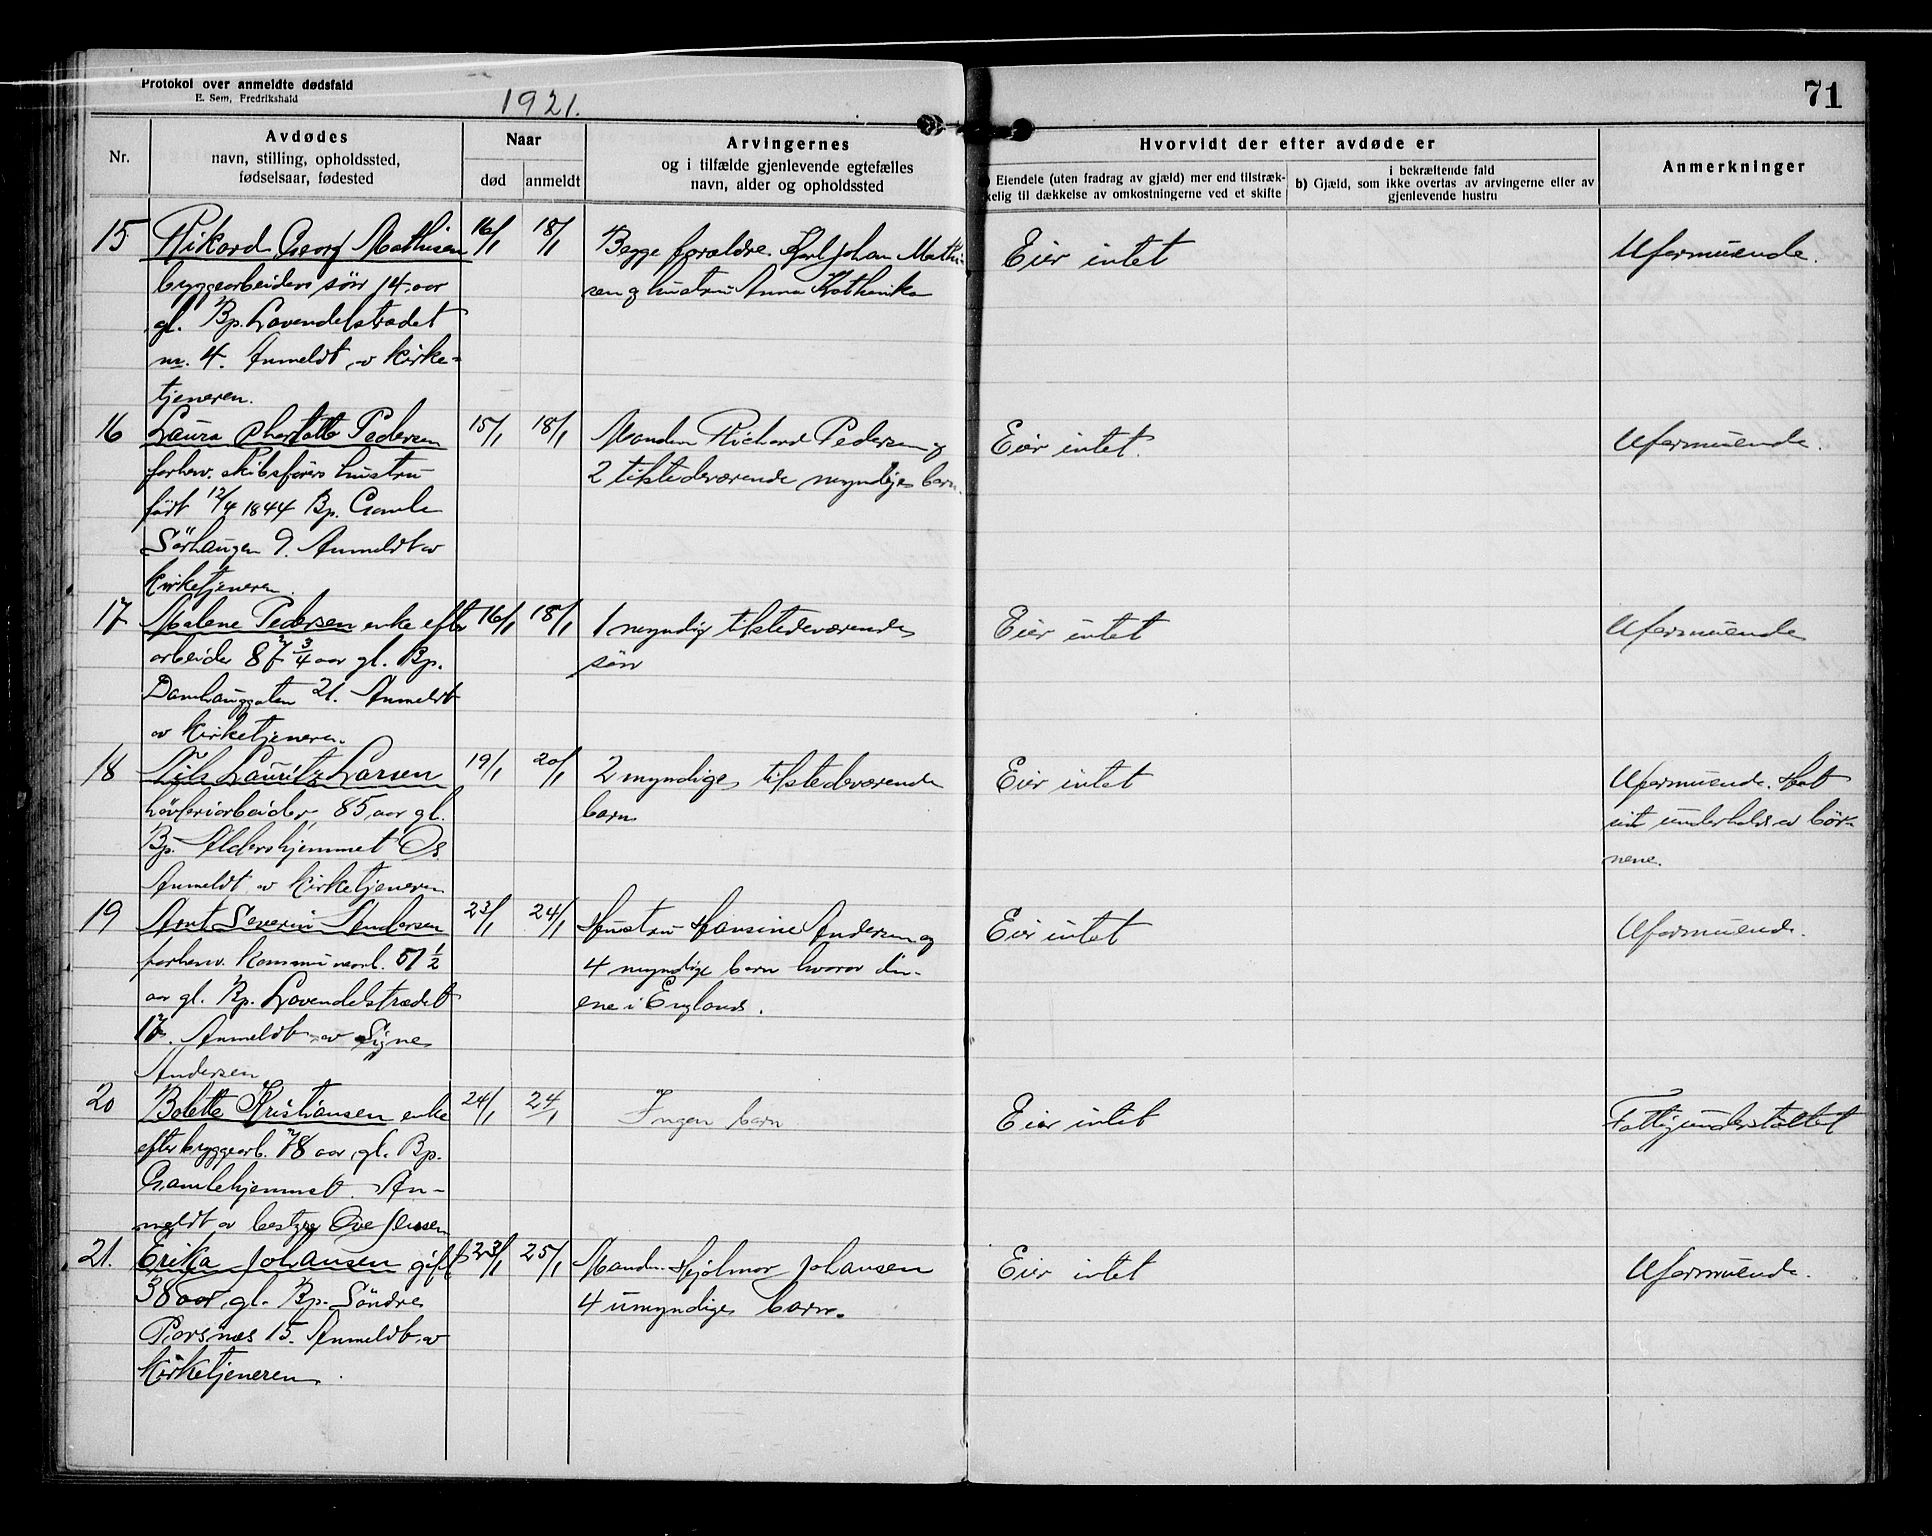 Protokol over anmeldte dødsfald
E. Sem, Fredrikshald
1921.
71
Nr.
Avdødes
navn, stilling, opholdssted,
fødselsaar, fødested
Naar
død
anmeldt
Arvingernes
og i tilfælde gjenlevende egtefælles
navn, alder og opholdssted
Hvorvidt der efter avdøde er
Eiendele (uten fradrag av gjæld) mer end tilstræk-
kelig til dækkelse av omkostningerne ved et skifte
i bekræftende fald
b) Gjæld, som ikke overtas av arvingerne eller av
gjenlevende hustru
Anmerkninger
15 Rikard Georg Mathisen 16/1 18/1
bryggearbeiders søn 14 aar
gl. Bp. Lavendelstrædet
nr. 4. Anmeldt av kirke-
tjeneren.
Begge forældre. Karl Johan Mathi-
sen og hustru Anna Katharika
Eier intet
Uformuende.
16 Laura Charlotte Pedersen 15/1 18/1
forhenv. skibsførers hustru
født 12/4 1844 Bp. Gamle
Sørhaugen 9. Anmeldt av
kirketjeneren.
Manden Richard Pedersen og
2 tilstedeværende myndige barn.
Eier intet.
Uformuende.
17 Malene Pedersen enke efter 16/1 18/1
arbeider 87 3/4 aar gl. Bp.
Damhauggaten 21. Anmeldt
av kirketjeneren.
1 myndig tilstedeværende
søn
Eier intet
Uformuende
18 Nils Lauritz Larsen 19/1 20/1
høvleriarbeider, 85 aar gl.
Bp. Aldershjemmet Os
Anmeldt av kirketjeneren
2 myndige tilstedeværende
barn
Eier intet
Uformuende. Hat
sit underhold av bør-
nene.
19 Arnt Severin Andersen 23/1 24/1
forhenv. Kommunearb. 51 1/2
aar gl. Bp. Lavendelstrædet
17. Anmeldt av Signe
Andersen
Hustru Hansine Andersen og
4 myndige barn hvorav den
ene i England.
Eier intet
Uformuende.
20 Bolette Kristiansen enke 24/1 24/1
efter bryggearb. 78 aar gl. Bp.
Gamlehjemmet. An-
meldt av bestyrer Ove Jensen
Ingen barn
Eier intet
Fattigunderstøttet
21. Erika Johansen gift 23/1 25/1
38 aar gl. Bp. Søndre
Porsnæs 15. Anmeldt av
kirketjeneren.
Manden Hjalmar Johansen
4 umyndige barn.
Eier intet
Uformuende.